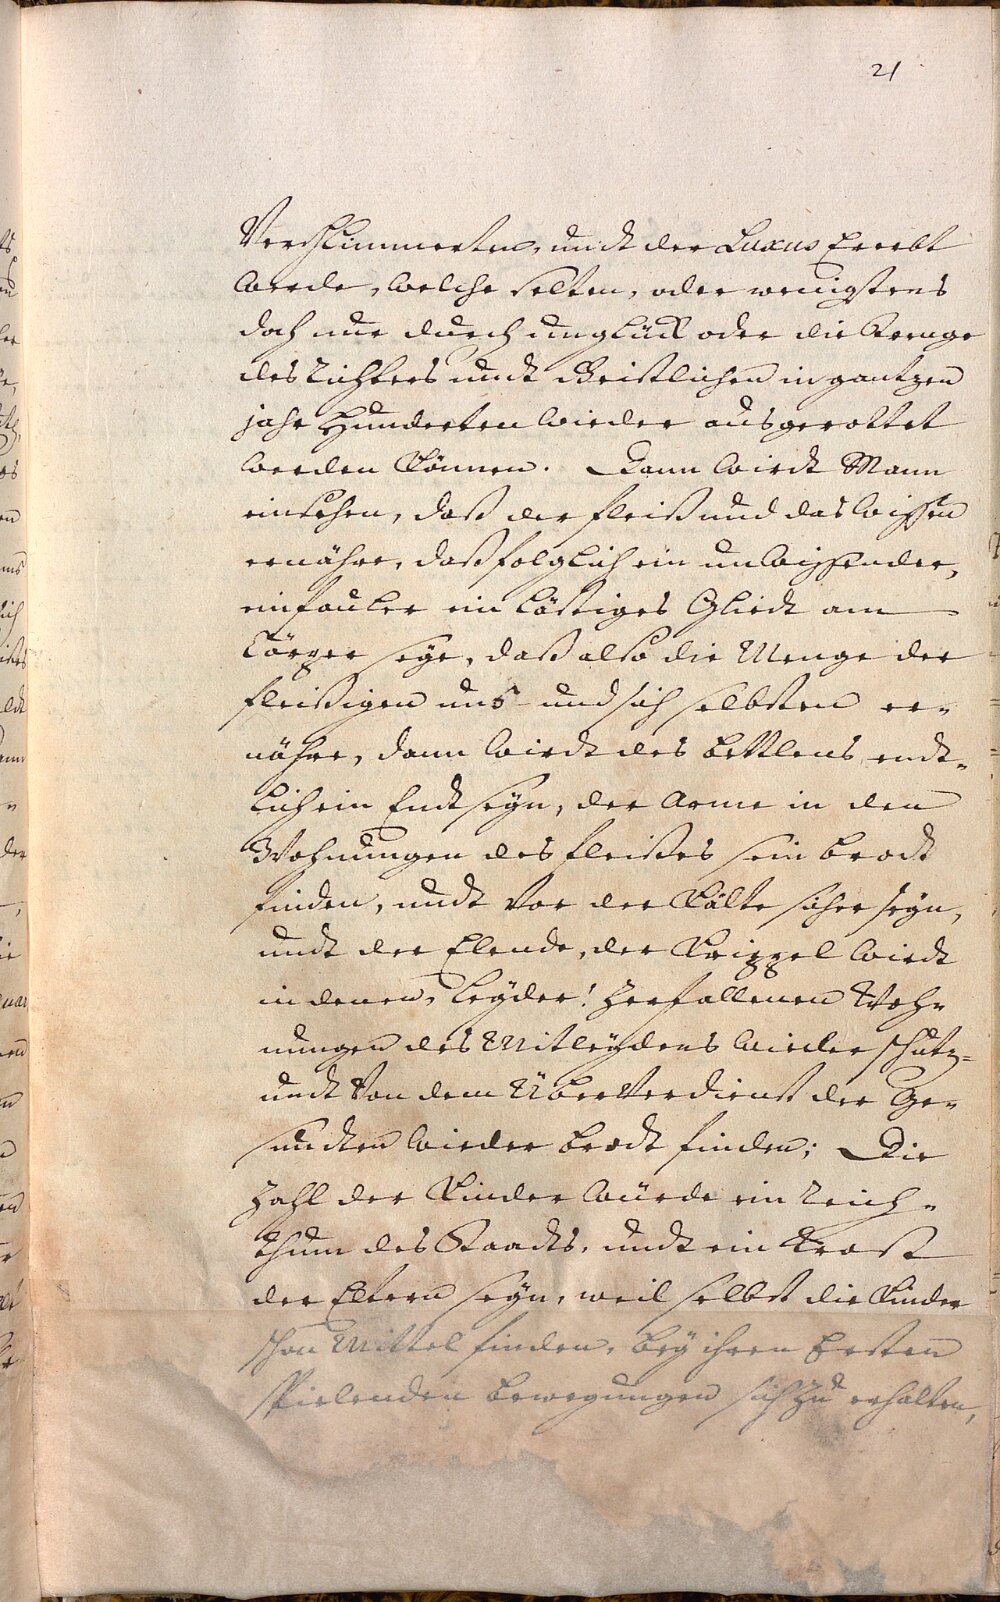 21
Verschlimmerten, undt der Luxus Ererbt
werde, welche selten, oder wenigstens
doch nur durch unglück oder die Strenge
des Richters undt Geistlichen in gantzen
jahr Hunderten wieder ausgerottet
werden können. Dann wirdt Mann
einsehen, daß der fleiß und das wissen
ernähre, daß folglich ein unwissender,
ein fauler ein lästiges Gliedt am
Cörper seye, daß also die Menge der
fleißigen uns und sich selbsten er-
nähre, dann wirdt des bettlens endt-
lich ein Endt seyn, der Arme in den
Wohnungen des fleißes sein brodt
finden, undt vor der Kälte sicher seyn,
undt der Elende, der Krippel wirdt
in denen, leyder! zerfallenen Woh-
nungen des Mitleydens wieder schutz-
undt von dem Überverdienst der Ge-
sundten wieder brodt finden; Die
Zahl der Kinder würde ein Reich-
thum des Staadts, undt ein Trost
der Eltern seyn, weil selbst die Kinder
schon Mittel finden, bey ihren Ersten
spielenden bewegungen sich zu erhalten,